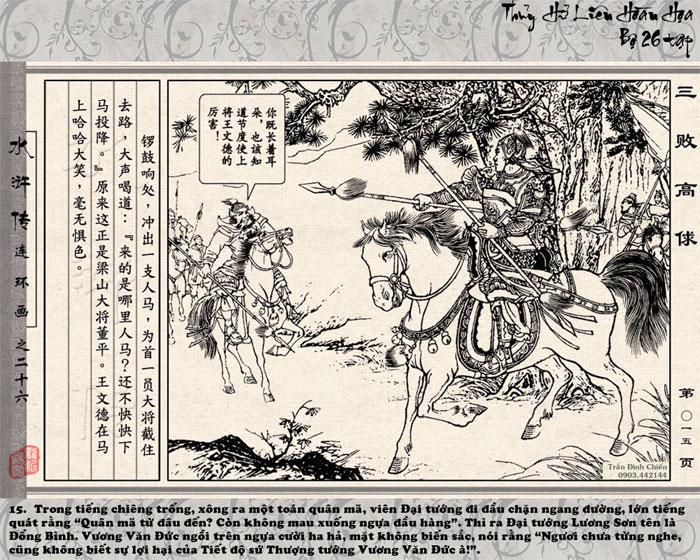 Thủy Hử Liên Hoàn Họa
Bộ 26 tập
三败高俅
第〇一五页
水浒传连环画之二十六
你既长着耳
朵，也该知
道节度使上
将王文德的
厉害！
锣鼓响处，冲出一支人马，为首一员大将截住
去路，大声喝道：『来的是哪里人马？还不快快下
马投降。』原来这正是梁山大将董平。王文德在马
上哈哈大笑，毫无惧色。
Trần Đình Chiến
0903.442144
15. Trong tiếng chiêng trống, xông ra một toán quân mã, viên Đại tướng đi đầu chặn ngang đường, lớn tiếng
quát rằng “Quân mã từ đâu đến? Còn không mau xuống ngựa đầu hàng”. Thì ra Đại tướng Lương Sơn tên là
Đổng Bình. Vương Văn Đức ngồi trên ngựa cười ha hả, mặt không biến sắc, nói rằng “Ngươi chưa từng nghe,
cũng không biết sự lợi hại của Tiết độ sứ Thượng tướng Vương Văn Đức à!”.